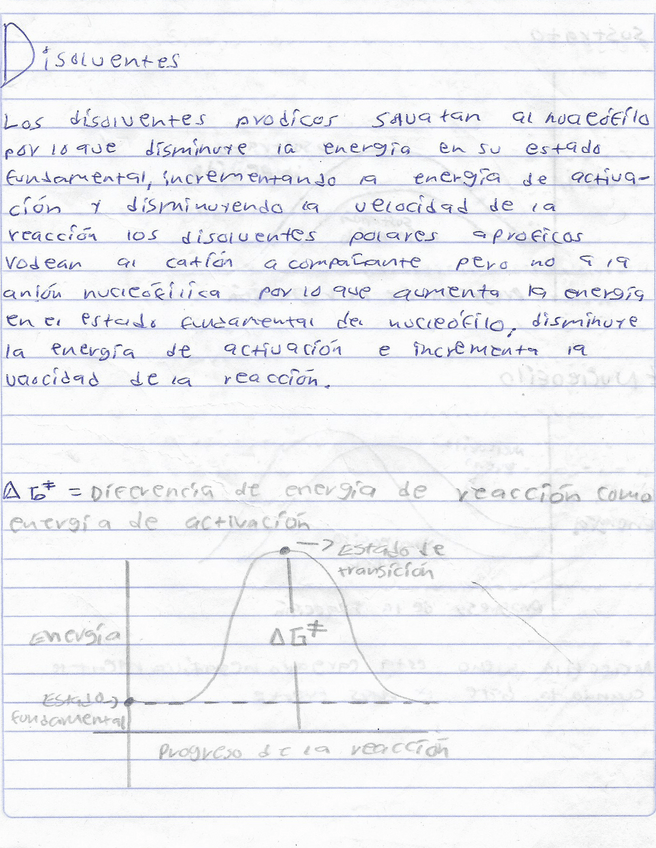 Disolventes
Los disolventes proticos solvatan al nucleófilo
por lo que disminuye la energía en su estado
fundamental, incrementando la energía de activa-
ción y disminuyendo la velocidad de la
reacción los disolventes polares aproticos
rodean al catión acompañante pero no a la
anión nucleófilica por lo que aumenta la energía
en el estado fundamental del nucleófilo, disminuye
la energía de activación e incrementa la
velocidad de la reacción.
ΔG‡ = Diferencia de energía de reacción como
energía de activación
Estado de
transición
ΔG‡
Energía
Estado
fundamental
Progreso de la reacción